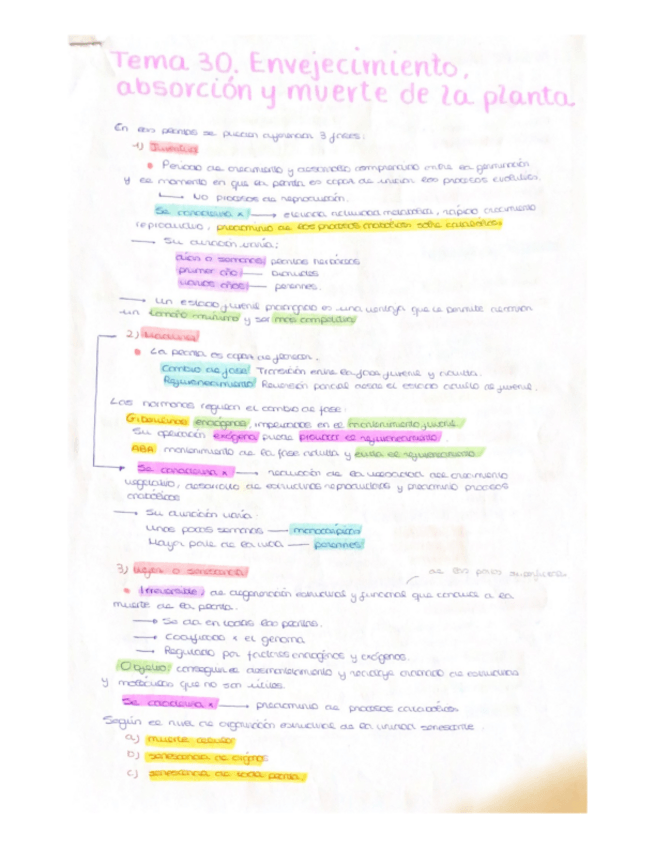 Tema 30. Envejecimiento,
absorción y muerte de la planta.
En las plantas se pueden diferenciar 3 fases:
1) Juventud
Periodo de crecimiento y desarrollo comprendido entre la germinación
y el momento en que la planta es capaz de iniciar los procesos
No procesos de reproducción.
Se caracteriza x elevada actividad metabólica, rápido crecimiento
predominio de los procesos anabólicos sobre catabólicos
Su duración varía:
días o semanas plantas herbáceas
primer año bianuales
varios años perennes.
Un estado juvenil prolongado es una ventaja que le permite
un tamaño mínimo y ser más competitiva
2) Madurez
La planta es capaz de florecer.
Cambio de fase: Transición entre la fase juvenil y adulta.
Rejuvenecimiento: Reversión parcial desde el estado adulto al juvenil.
Las hormonas regulan el cambio de fase:
Giberelinas endógenas, implicadas en el mantenimiento juvenil.
Su aplicación exógena puede producir el rejuvenecimiento.
ABA mantenimiento de la fase adulta y evita el rejuvenecimiento
Se caracteriza x reducción de la velocidad del crecimiento
vegetativo, desarrollo de estructuras reproductoras y predominio procesos
anabólicos
Su duración varía:
Unas pocas semanas monocárpicas
Mayor parte de la vida perennes
3) Vejez o senescencia
Irreversible, de degeneración estructural y funcional que conduce a la
muerte de la planta.
Se da en todas las plantas.
Codificado x el genoma
Regulado por factores endógenos y exógenos.
Objetivo: conseguir el desmantelamiento y reciclaje ordenado de estructuras
y moléculas que no son útiles.
Se caracteriza x predominio de procesos catabólicos
Según el nivel de organización estructural de la unidad senescente
a) muerte celular
b) senescencia de órganos
c) senescencia de toda planta.